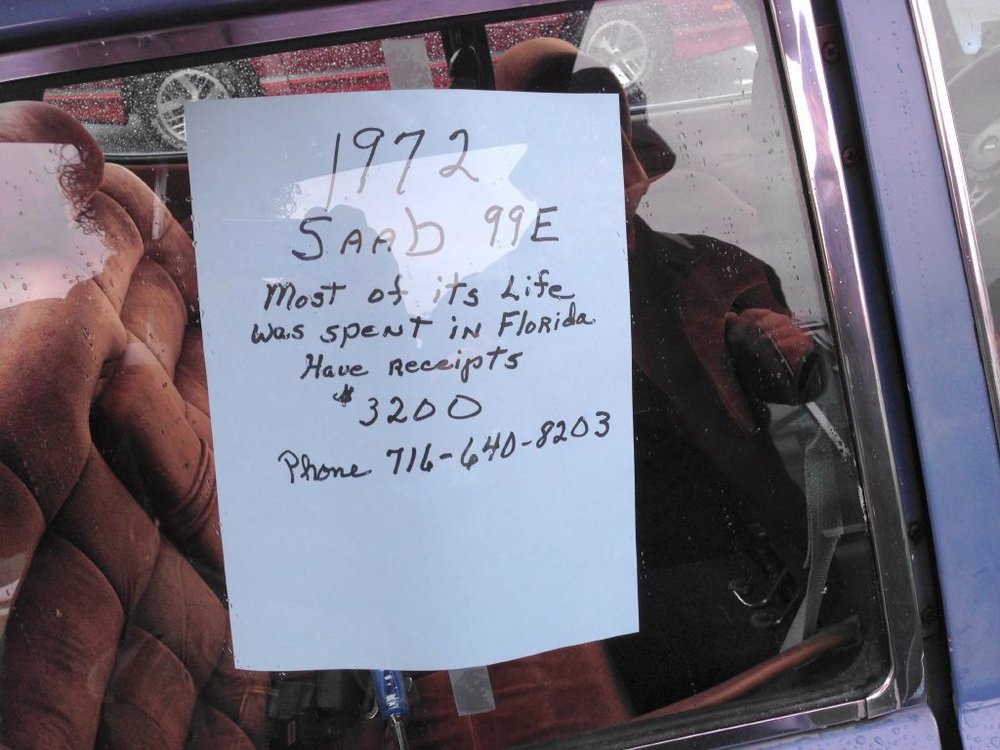 1972
SAAb 99E
Most of its Life
was spent in Florida
Have Receipts
$3200
Phone 716-640-8203